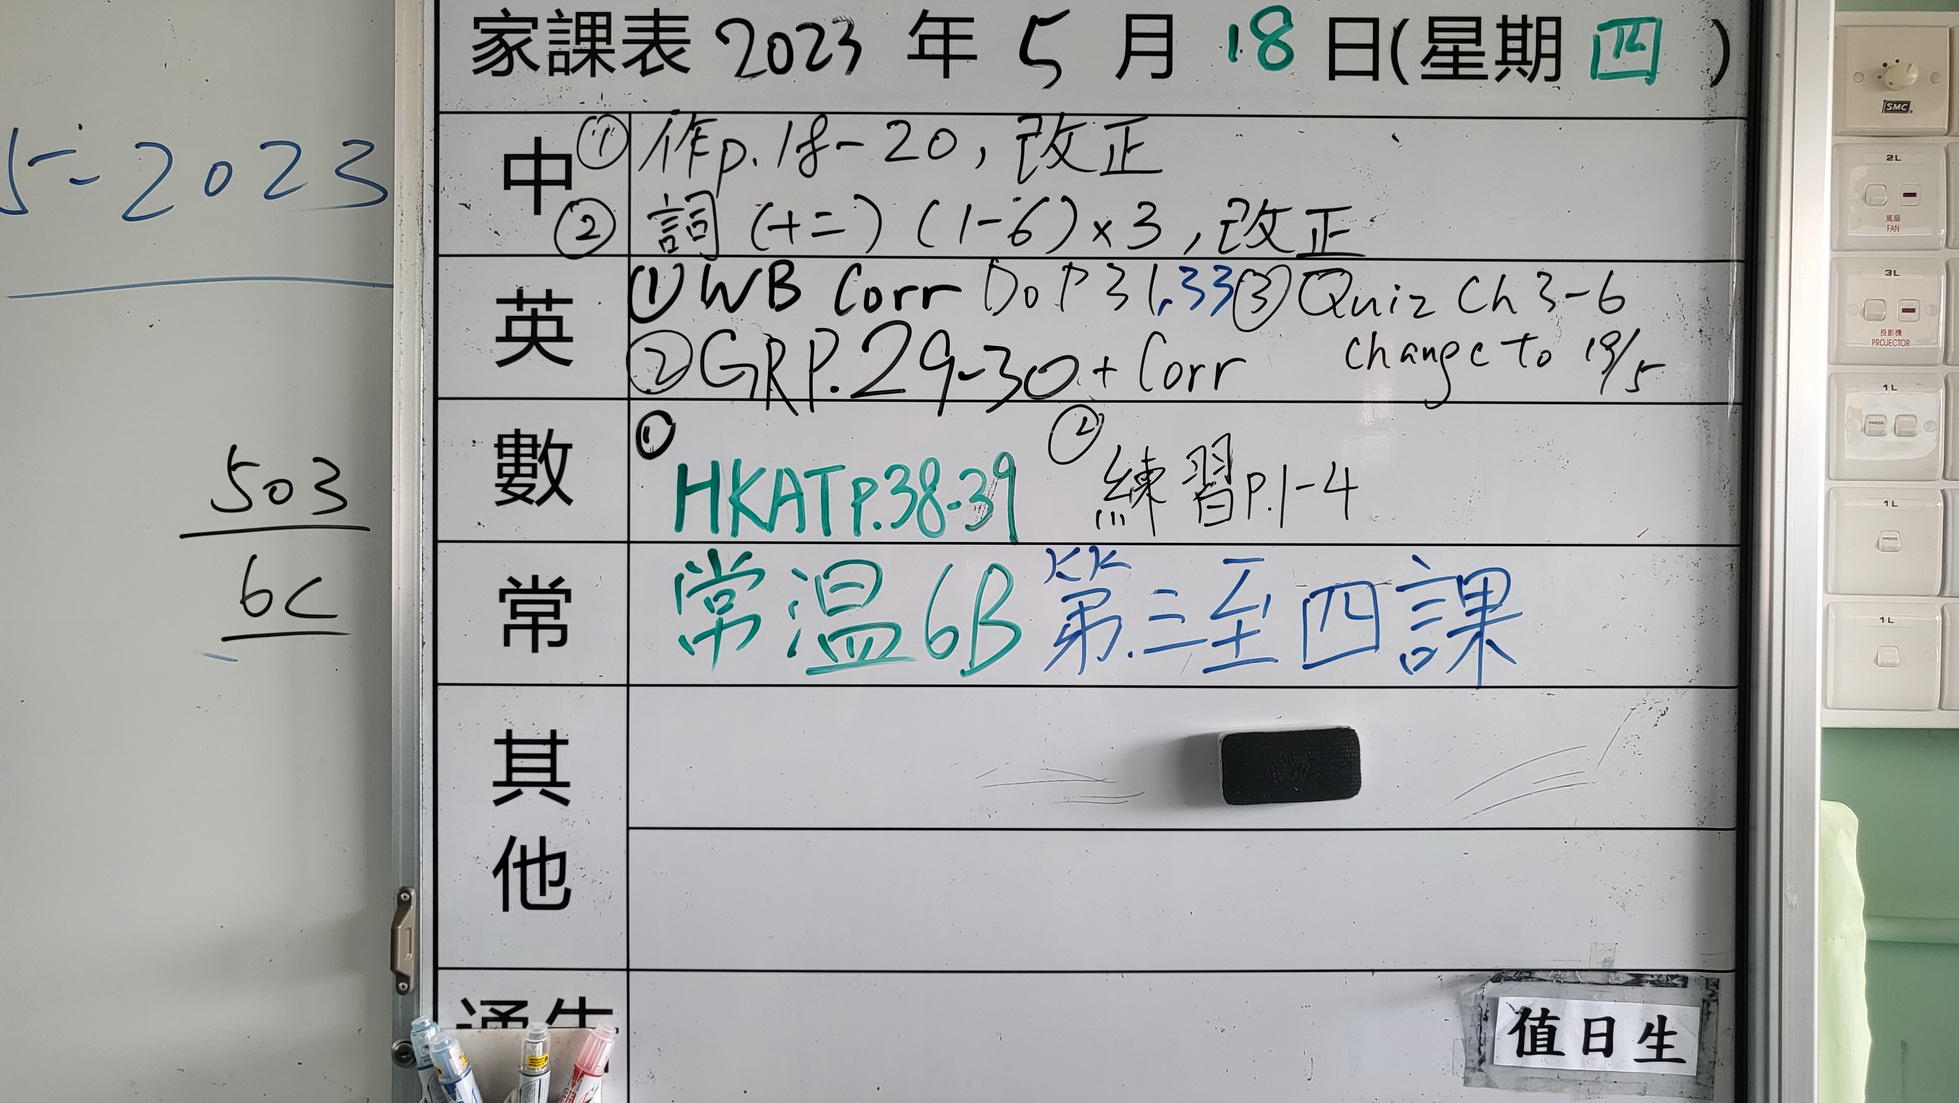 5-2023
503
6C
家課表 2023 年 5 月 18 日(星期 四 )
中 ① 作p.18-20, 改正
② 詞 (十二) (1-6)×3, 改正
英 ① WB Corr Do P31,33 ③ Quiz Ch 3-6
change to 19/5
② GR P.29-30 + Corr
數 ① HKAT P.38-39 ② 練習P.1-4
常 常温6B 第三至四課
其他
通告
值日生
SMC
2L
風扇
FAN
3L
投影機
PROJECTOR
1L
PRESS
1L
PRESS
1L